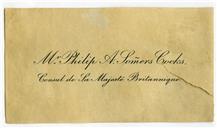 Mr. Philip A. Somers Cocks.
Consul de Sa Majesté Britannique